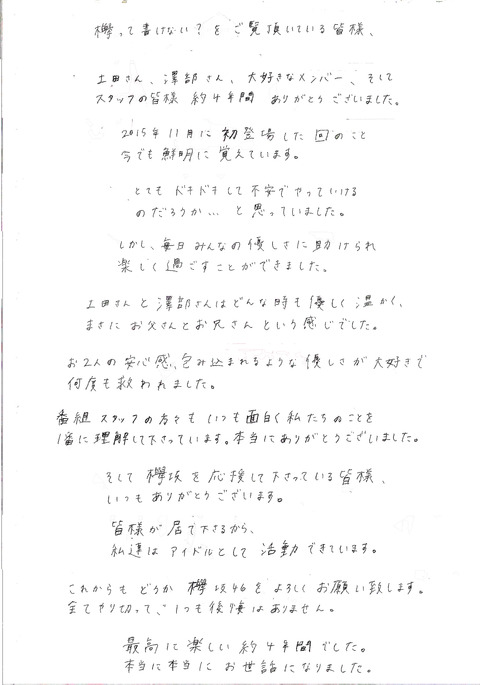 欅って書けない?をご覧頂いている皆様、
土田さん、澤部さん、大好きなメンバー、そして
スタッフの皆様 約4年間 ありがとうございました。
2015年11月に初登場した回のこと
今でも鮮明に覚えています。
とてもドキドキして不安でやっていける
のだろうか… と思っていました。
しかし、毎日みんなの優しさに助けられ
楽しく過ごすことができました。
土田さんと澤部さんはどんな時も優しく温かく、
まさにお父さんとお兄さんという感じでした。
お2人の安心感、包み込まれるような優しさが大好きで
何度も救われました。
番組スタッフの方々もいつも面白く私たちのことを
1番に理解して下さっています。本当にありがとうございました。
そして欅坂を応援して下さっている皆様、
いつもありがとうございます。
皆様が居て下さるから、
私達はアイドルとして活動できています。
これからもどうか欅坂46をよろしくお願い致します。
全てやり切って、1つも後悔はありません。
最高に楽しい約4年間でした。
本当に本当にお世話になりました。